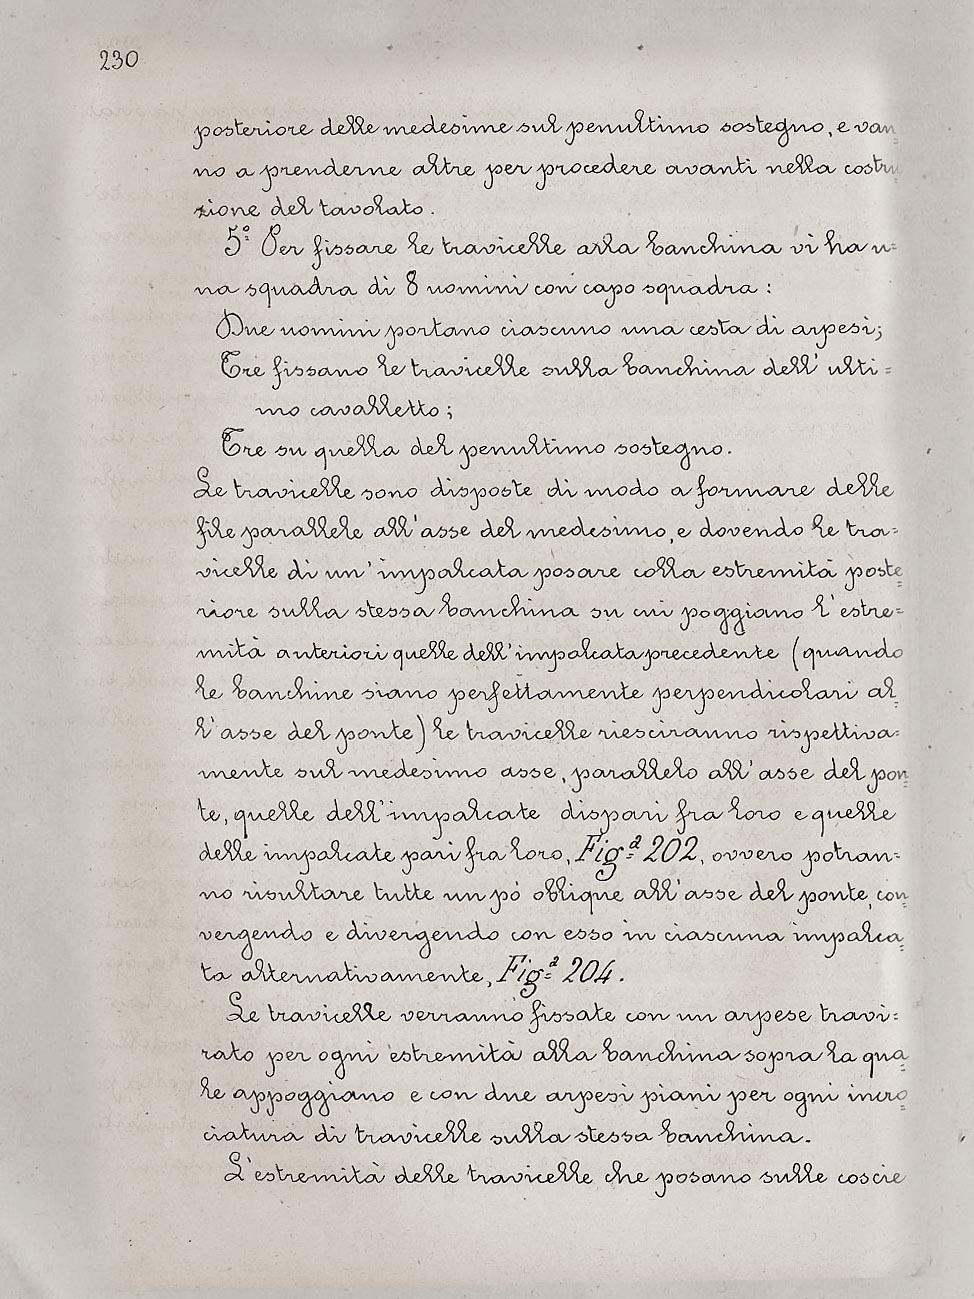 230
posteriore delle medesime sul penultimo sostegno, e van
no a prenderne altre per procedere avanti nella costru
zione del tavolato.
5º Per fissare le travicelle alla banchina vi ha u=
na squadra di 8 uomini con capo squadra :
Due uomini portano ciascuno una cesta di arpesi;
Tre fissano le travicelle sulla banchina dell' ulti=
mo cavalletto;
Tre su quella del penultimo sostegno.
Le travicelle sono disposte di modo a formare delle
file parallele all'asse del medesimo, e dovendo le tra=
vicelle di un' impalcata posare colla estremità poste=
riore sulla stessa banchina su cui poggiano l'estre=
mità anteriori quelle dell'impalcata precedente (quando
le banchine siano perfettamente perpendicolari al=
l'asse del ponte) le travicelle riesciranno rispettiva=
mente sul medesimo asse, parallelo all'asse del pon=
te, quelle dell'impalcate dispari fra loro e quelle
delle impalcate pari fra loro, Figª 202, ovvero potran=
no risultare tutte un pò oblique all'asse del ponte, con=
vergendo e divergendo con esso in ciascuna impalca=
ta alternativamente, Figª 204.
Le travicelle verranno fissate con un arpese travi=
rato per ogni estremità alla banchina sopra la qua=
le appoggiano e con due arpesi piani per ogni incro=
ciatura di travicelle sulla stessa banchina.
L'estremità delle travicelle che posano sulle coscie